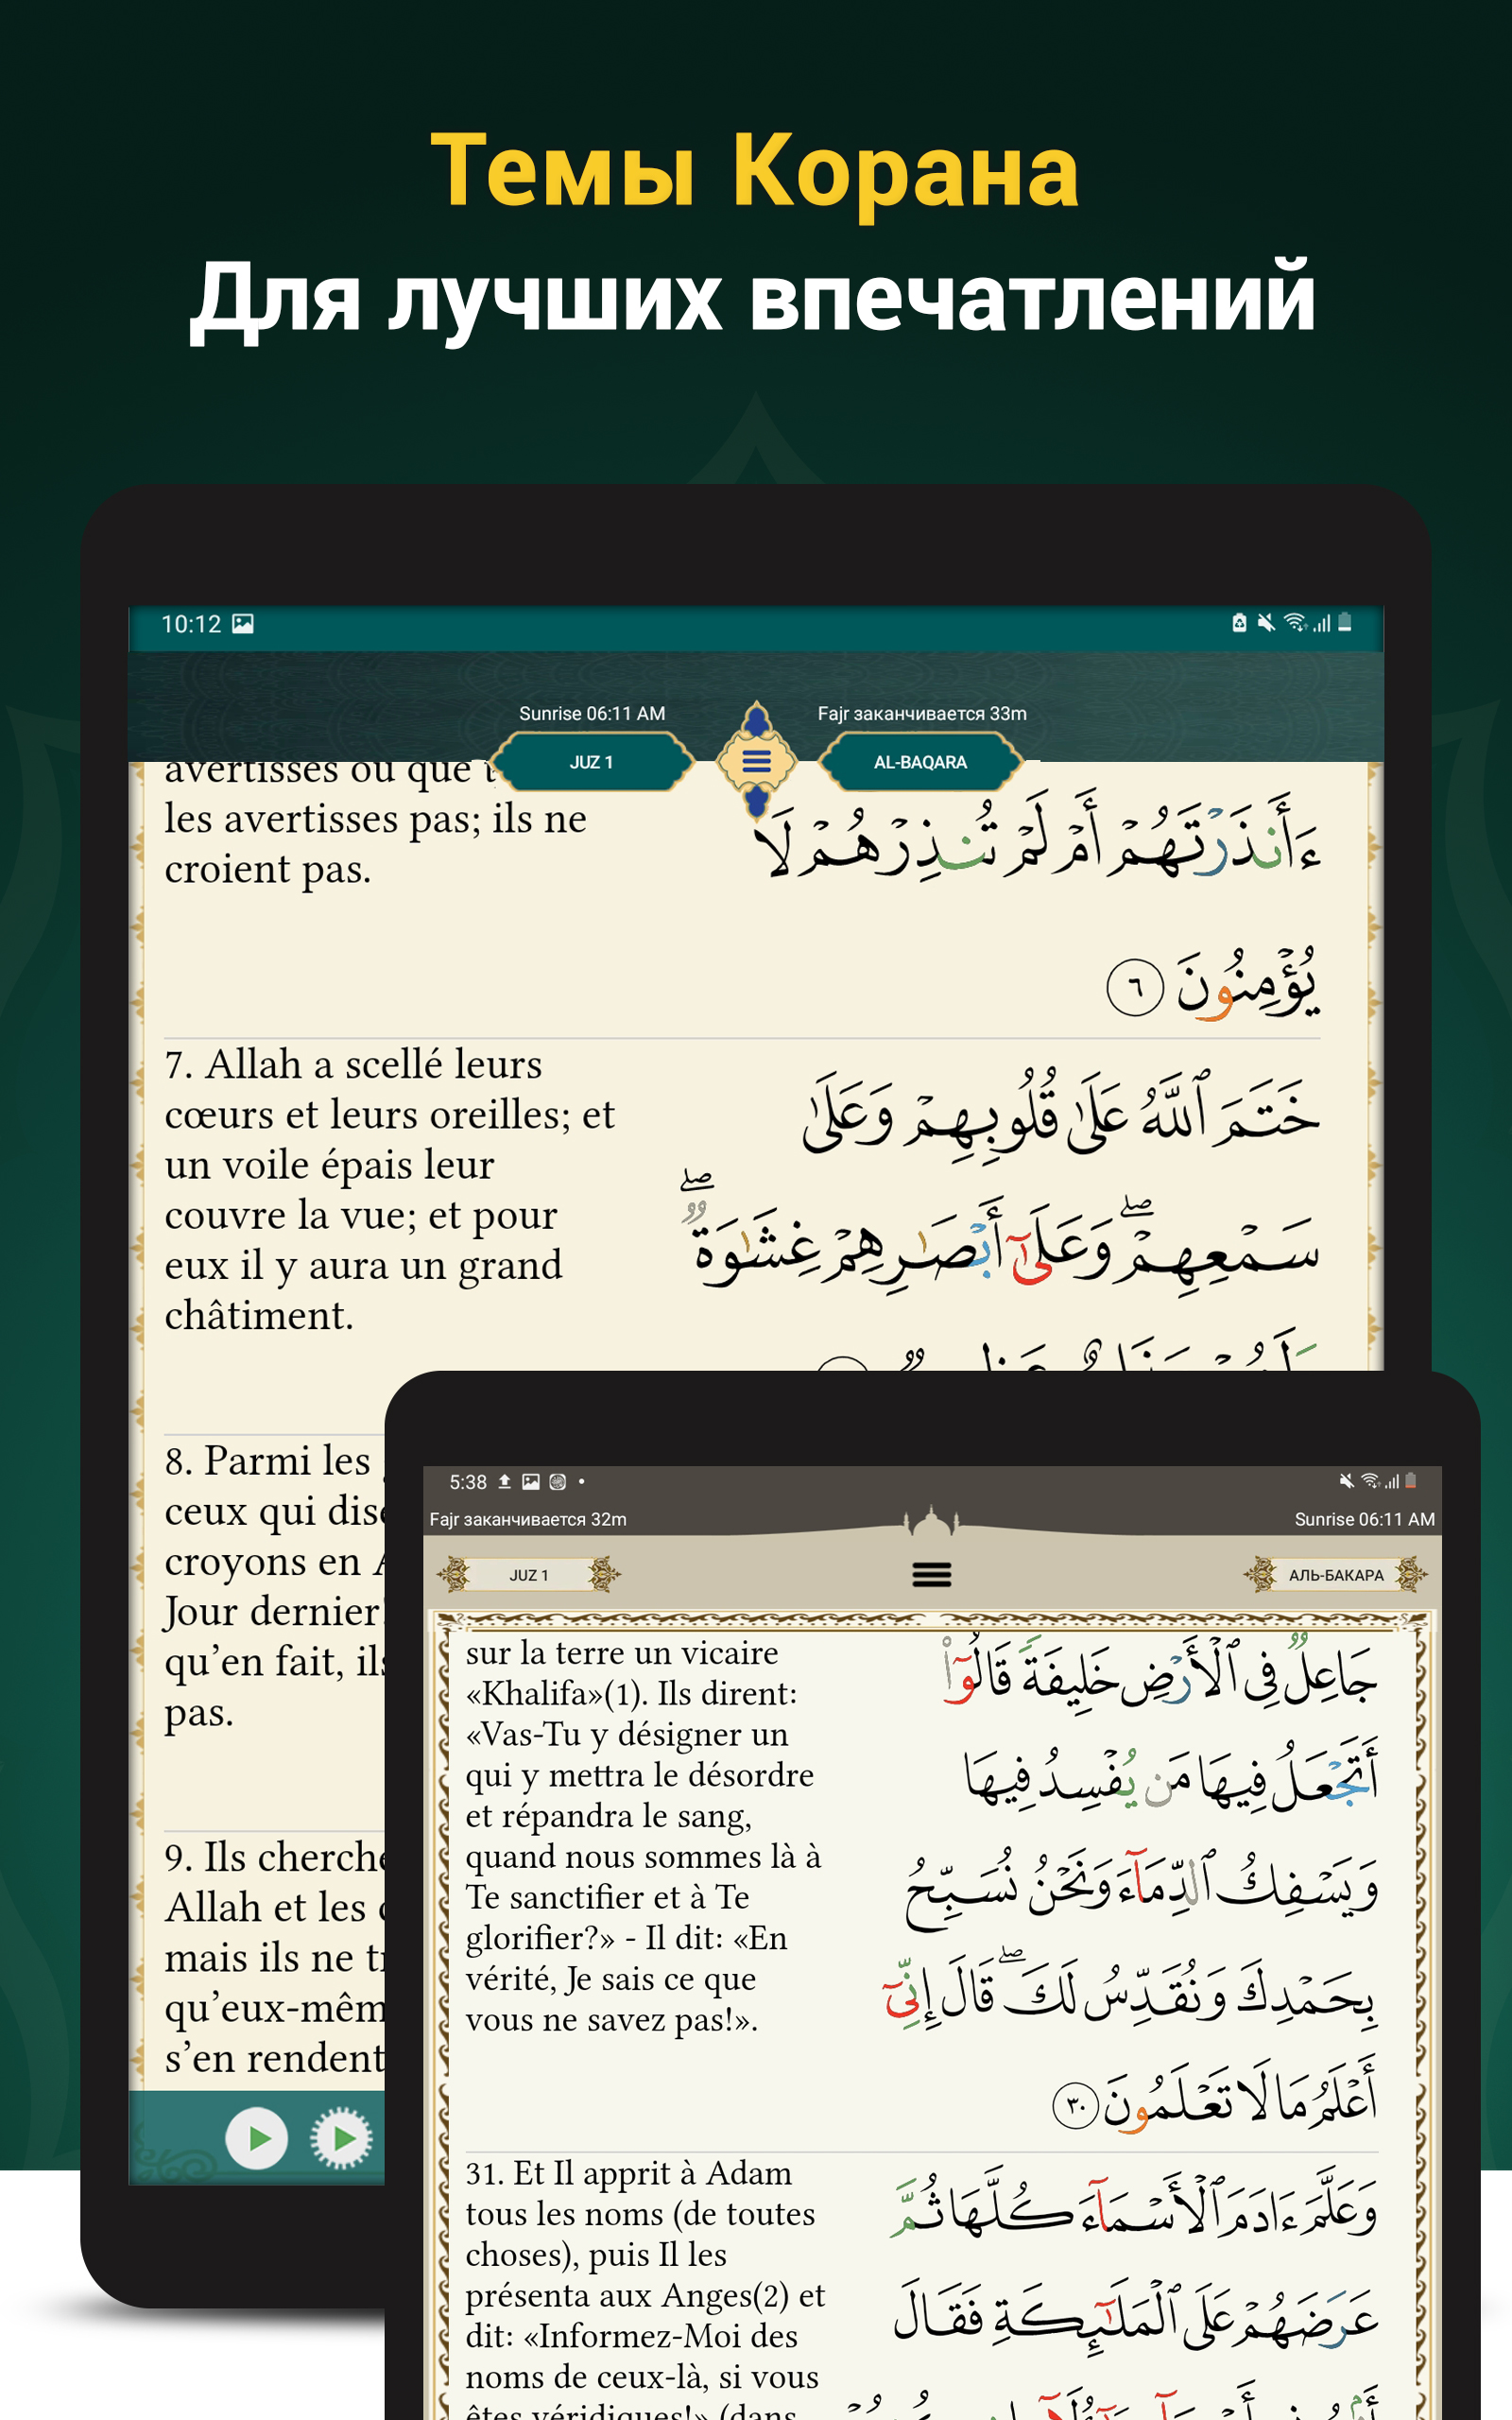 Темы Корана
Для лучших впечатлений
10:12
Sunrise 06:11 AM
Fajr заканчивается 33m
JUZ 1
AL-BAQARA
avertisses ou que
les avertisses pas; ils ne
croient pas.
ءَأَنذَرْتَهُمْ أَمْ لَمْ تُنذِرْهُمْ لَا
يُؤْمِنُونَ ٦
7. Allah a scellé leurs
cœurs et leurs oreilles; et
un voile épais leur
couvre la vue; et pour
eux il y aura un grand
châtiment.
خَتَمَ ٱللَّهُ عَلَىٰ قُلُوبِهِمْ وَعَلَىٰ
سَمْعِهِمْ ۖ وَعَلَىٰٓ أَبْصَـٰرِهِمْ غِشَـٰوَةٌ ۖ
8. Parmi les
ceux qui dise
croyons en A
Jour dernier!
qu’en fait, ils
pas.
9. Ils cherche
Allah et les
mais ils ne tr
qu’eux-mêm
s’en rendent
5:38
Fajr заканчивается 32m
Sunrise 06:11 AM
JUZ 1
АЛЬ-БАКАРА
sur la terre un vicaire
«Khalifa»(1). Ils dirent:
«Vas-Tu y désigner un
qui y mettra le désordre
et répandra le sang,
quand nous sommes là à
Te sanctifier et à Te
glorifier?» - Il dit: «En
vérité, Je sais ce que
vous ne savez pas!».
جَاعِلٌ فِى ٱلْأَرْضِ خَلِيفَةً قَالُوٓا۟
أَتَجْعَلُ فِيهَا مَن يُفْسِدُ فِيهَا
وَيَسْفِكُ ٱلدِّمَآءَ وَنَحْنُ نُسَبِّحُ
بِحَمْدِكَ وَنُقَدِّسُ لَكَ ۖ قَالَ إِنِّىٓ
أَعْلَمُ مَا لَا تَعْلَمُونَ ٣٠
31. Et Il apprit à Adam
tous les noms (de toutes
choses), puis Il les
présenta aux Anges(2) et
dit: «Informez-Moi des
noms de ceux-là, si vous
êtes véridiques!» (dans
وَعَلَّمَ ءَادَمَ ٱلْأَسْمَآءَ كُلَّهَا ثُمَّ
عَرَضَهُمْ عَلَى ٱلْمَلَـٰٓئِكَةِ فَقَالَ